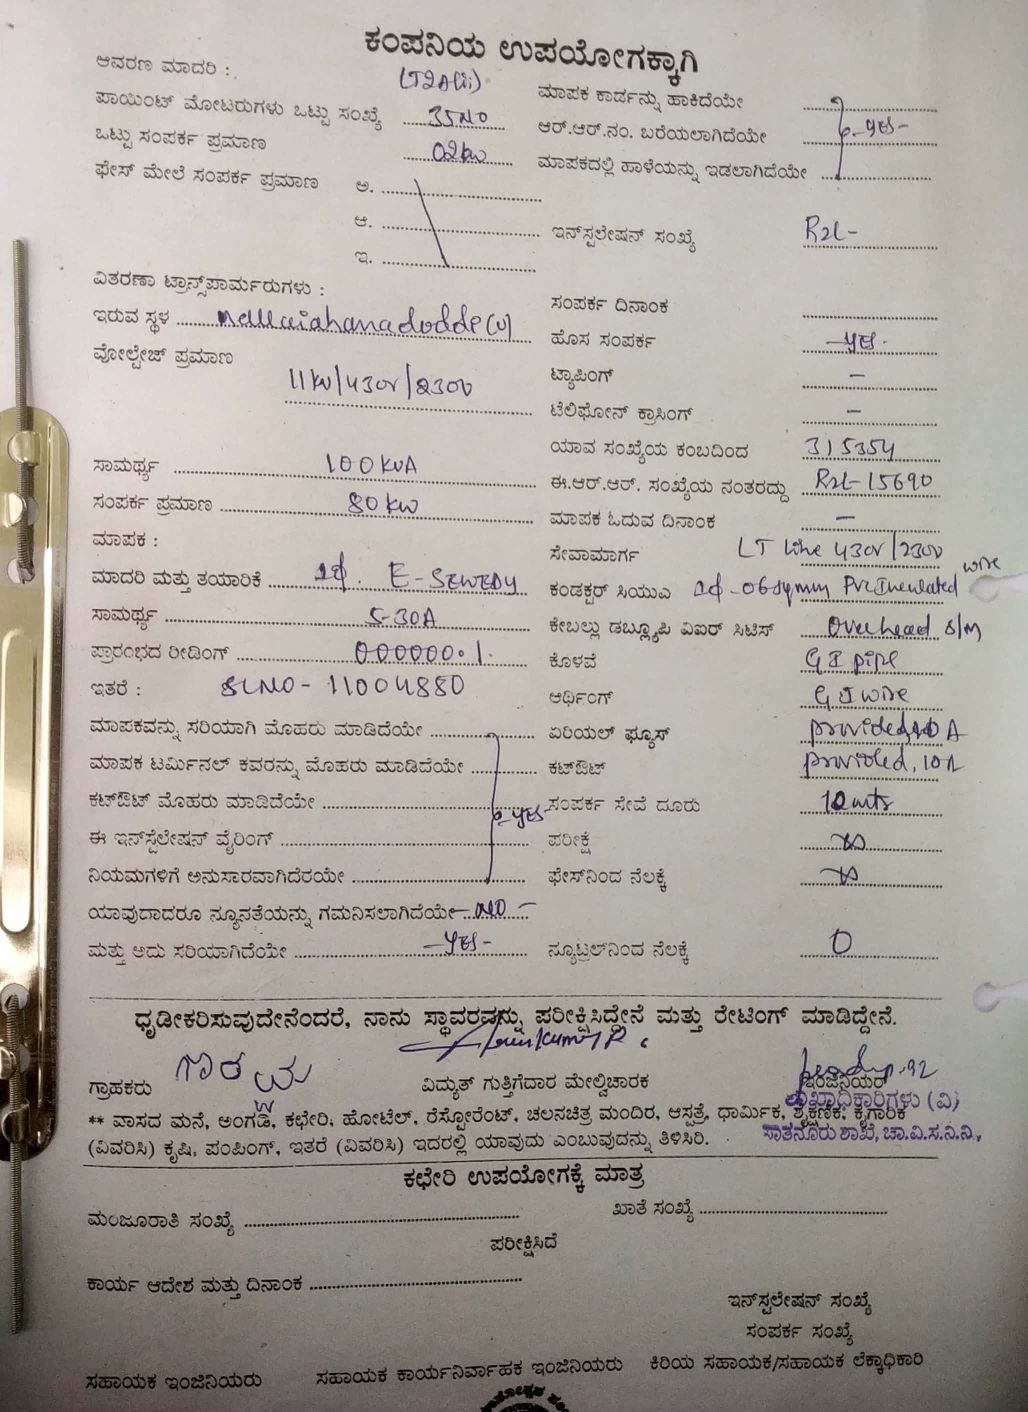 ಕಂಪನಿಯ ಉಪಯೋಗಕ್ಕಾಗಿ
ಆವರಣ ಮಾದರಿ : LT2A(ii)
ಮಾಪಕ ಕಾರ್ಡನ್ನು ಹಾಕಿದೆಯೇ
ಪಾಯಿಂಟ್ ಮೋಟರುಗಳು ಒಟ್ಟು ಸಂಖ್ಯೆ 35NO
ಆರ್.ಆರ್.ನಂ. ಬರೆಯಲಾಗಿದೆಯೇ -YES-
ಒಟ್ಟು ಸಂಪರ್ಕ ಪ್ರಮಾಣ 02KW
ಮಾಪಕದಲ್ಲಿ ಹಾಳೆಯನ್ನು ಇಡಲಾಗಿದೆಯೇ
ಫೇಸ್ ಮೇಲೆ ಸಂಪರ್ಕ ಪ್ರಮಾಣ ಅ.
ಆ.
ಇನ್‌ಸ್ಪಲೇಷನ್ ಸಂಖ್ಯೆ R2L-
ಇ.
ವಿತರಣಾ ಟ್ರಾನ್ಸ್‌ಪಾರ್ಮರುಗಳು :
ಸಂಪರ್ಕ ದಿನಾಂಕ
ಇರುವ ಸ್ಥಳ Mallaiahanadodde(V)
ಹೊಸ ಸಂಪರ್ಕ -YES-
ವೋಲ್ಟೇಜ್ ಪ್ರಮಾಣ 11KV/430V/230V
ಟ್ಯಾಪಿಂಗ್ -
ಟೆಲಿಫೋನ್ ಕ್ರಾಸಿಂಗ್ -
ಯಾವ ಸಂಖ್ಯೆಯ ಕಂಬದಿಂದ 315354
ಸಾಮರ್ಥ್ಯ 100KVA
ಈ.ಆರ್.ಆರ್. ಸಂಖ್ಯೆಯ ನಂತರದ್ದು R2L-15690
ಸಂಪರ್ಕ ಪ್ರಮಾಣ 80KW
ಮಾಪಕ ಓದುವ ದಿನಾಂಕ -
ಮಾಪಕ :
ಸೇವಾಮಾರ್ಗ LT Line 430V/230V
ಮಾದರಿ ಮತ್ತು ತಯಾರಿಕೆ 1φ. E-SEWEDY
ಕಂಡಕ್ಟರ್ ಸಿಯುಎ 1φ-06sqmm PVC Insulated wire
ಸಾಮರ್ಥ್ಯ 5-30A
ಕೇಬಲ್ಲು ಡಬ್ಲ್ಯೂಪಿ ವಿಐರ್ ಸಿಟಿಸ್ Overhead S/M
ಪ್ರಾರಂಭದ ರೀಡಿಂಗ್ 000000.1
ಕೊಳವೆ GI pipe
ಇತರೆ : SLNO-11004880
ಆರ್ಥಿಂಗ್ GI wire
ಮಾಪಕವನ್ನು ಸರಿಯಾಗಿ ಮೊಹರು ಮಾಡಿದೆಯೇ
ಏರಿಯಲ್ ಫ್ಯೂಸ್ provided 10A
ಮಾಪಕ ಟರ್ಮಿನಲ್ ಕವರನ್ನು ಮೊಹರು ಮಾಡಿದೆಯೇ
ಕಟ್‌ಔಟ್ provided, 10A
ಕಟ್‌ಔಟ್ ಮೊಹರು ಮಾಡಿದೆಯೇ -YES-
ಸಂಪರ್ಕ ಸೇವೆ ದೂರು 10mts
ಈ ಇನ್‌ಸ್ಟೆಲೇಷನ್ ವೈರಿಂಗ್
ಪರೀಕ್ಷೆ ∞
ನಿಯಮಗಳಿಗೆ ಅನುಸಾರವಾಗಿದೆರಯೇ
ಫೇಸ್‌ನಿಂದ ನೆಲಕ್ಕೆ ∞
ಯಾವುದಾದರೂ ನ್ಯೂನತೆಯನ್ನು ಗಮನಿಸಲಾಗಿದೆಯೇ -NO-
ಮತ್ತು ಅದು ಸರಿಯಾಗಿದೆಯೇ -YES-
ನ್ಯೂಟ್ರಲ್‌ನಿಂದ ನೆಲಕ್ಕೆ 0
ಧೃಡೀಕರಿಸುವುದೇನೆಂದರೆ, ನಾನು ಸ್ಥಾವರವನ್ನು ಪರೀಕ್ಷಿಸಿದ್ದೇನೆ ಮತ್ತು ರೇಟಿಂಗ್ ಮಾಡಿದ್ದೇನೆ.
ಗ್ರಾಹಕರು
ವಿದ್ಯುತ್ ಗುತ್ತಿಗೆದಾರ ಮೇಲ್ವಿಚಾರಕ
ಇಂಜಿನಿಯರ್
ಶಾಖಾಧಿಕಾರಿಗಳು (ವಿ)
** ವಾಸದ ಮನೆ, ಅಂಗಡಿ, ಕಛೇರಿ, ಹೋಟೆಲ್, ರೆಸ್ಟೋರೆಂಟ್, ಚಲನಚಿತ್ರ ಮಂದಿರ, ಆಸ್ಪತ್ರೆ, ಧಾರ್ಮಿಕ, ಶೈಕ್ಷಣಿಕ, ಕೈಗಾರಿಕೆ
ಸಾತನೂರು ಶಾಖೆ, ಚಾ.ವಿ.ಸ.ನಿ.ನಿ.,
(ವಿವರಿಸಿ) ಕೃಷಿ, ಪಂಪಿಂಗ್, ಇತರೆ (ವಿವರಿಸಿ) ಇದರಲ್ಲಿ ಯಾವುದು ಎಂಬುವುದನ್ನು ತಿಳಿಸಿರಿ.
ಕಛೇರಿ ಉಪಯೋಗಕ್ಕೆ ಮಾತ್ರ
ಮಂಜೂರಾತಿ ಸಂಖ್ಯೆ
ಖಾತೆ ಸಂಖ್ಯೆ
ಪರೀಕ್ಷಿಸಿದೆ
ಕಾರ್ಯ ಆದೇಶ ಮತ್ತು ದಿನಾಂಕ
ಇನ್‌ಸ್ಪಲೇಷನ್ ಸಂಖ್ಯೆ
ಸಂಪರ್ಕ ಸಂಖ್ಯೆ
ಸಹಾಯಕ ಇಂಜಿನಿಯರು
ಸಹಾಯಕ ಕಾರ್ಯನಿರ್ವಾಹಕ ಇಂಜಿನಿಯರು
ಕಿರಿಯ ಸಹಾಯಕ/ಸಹಾಯಕ ಲೆಕ್ಕಾಧಿಕಾರಿ